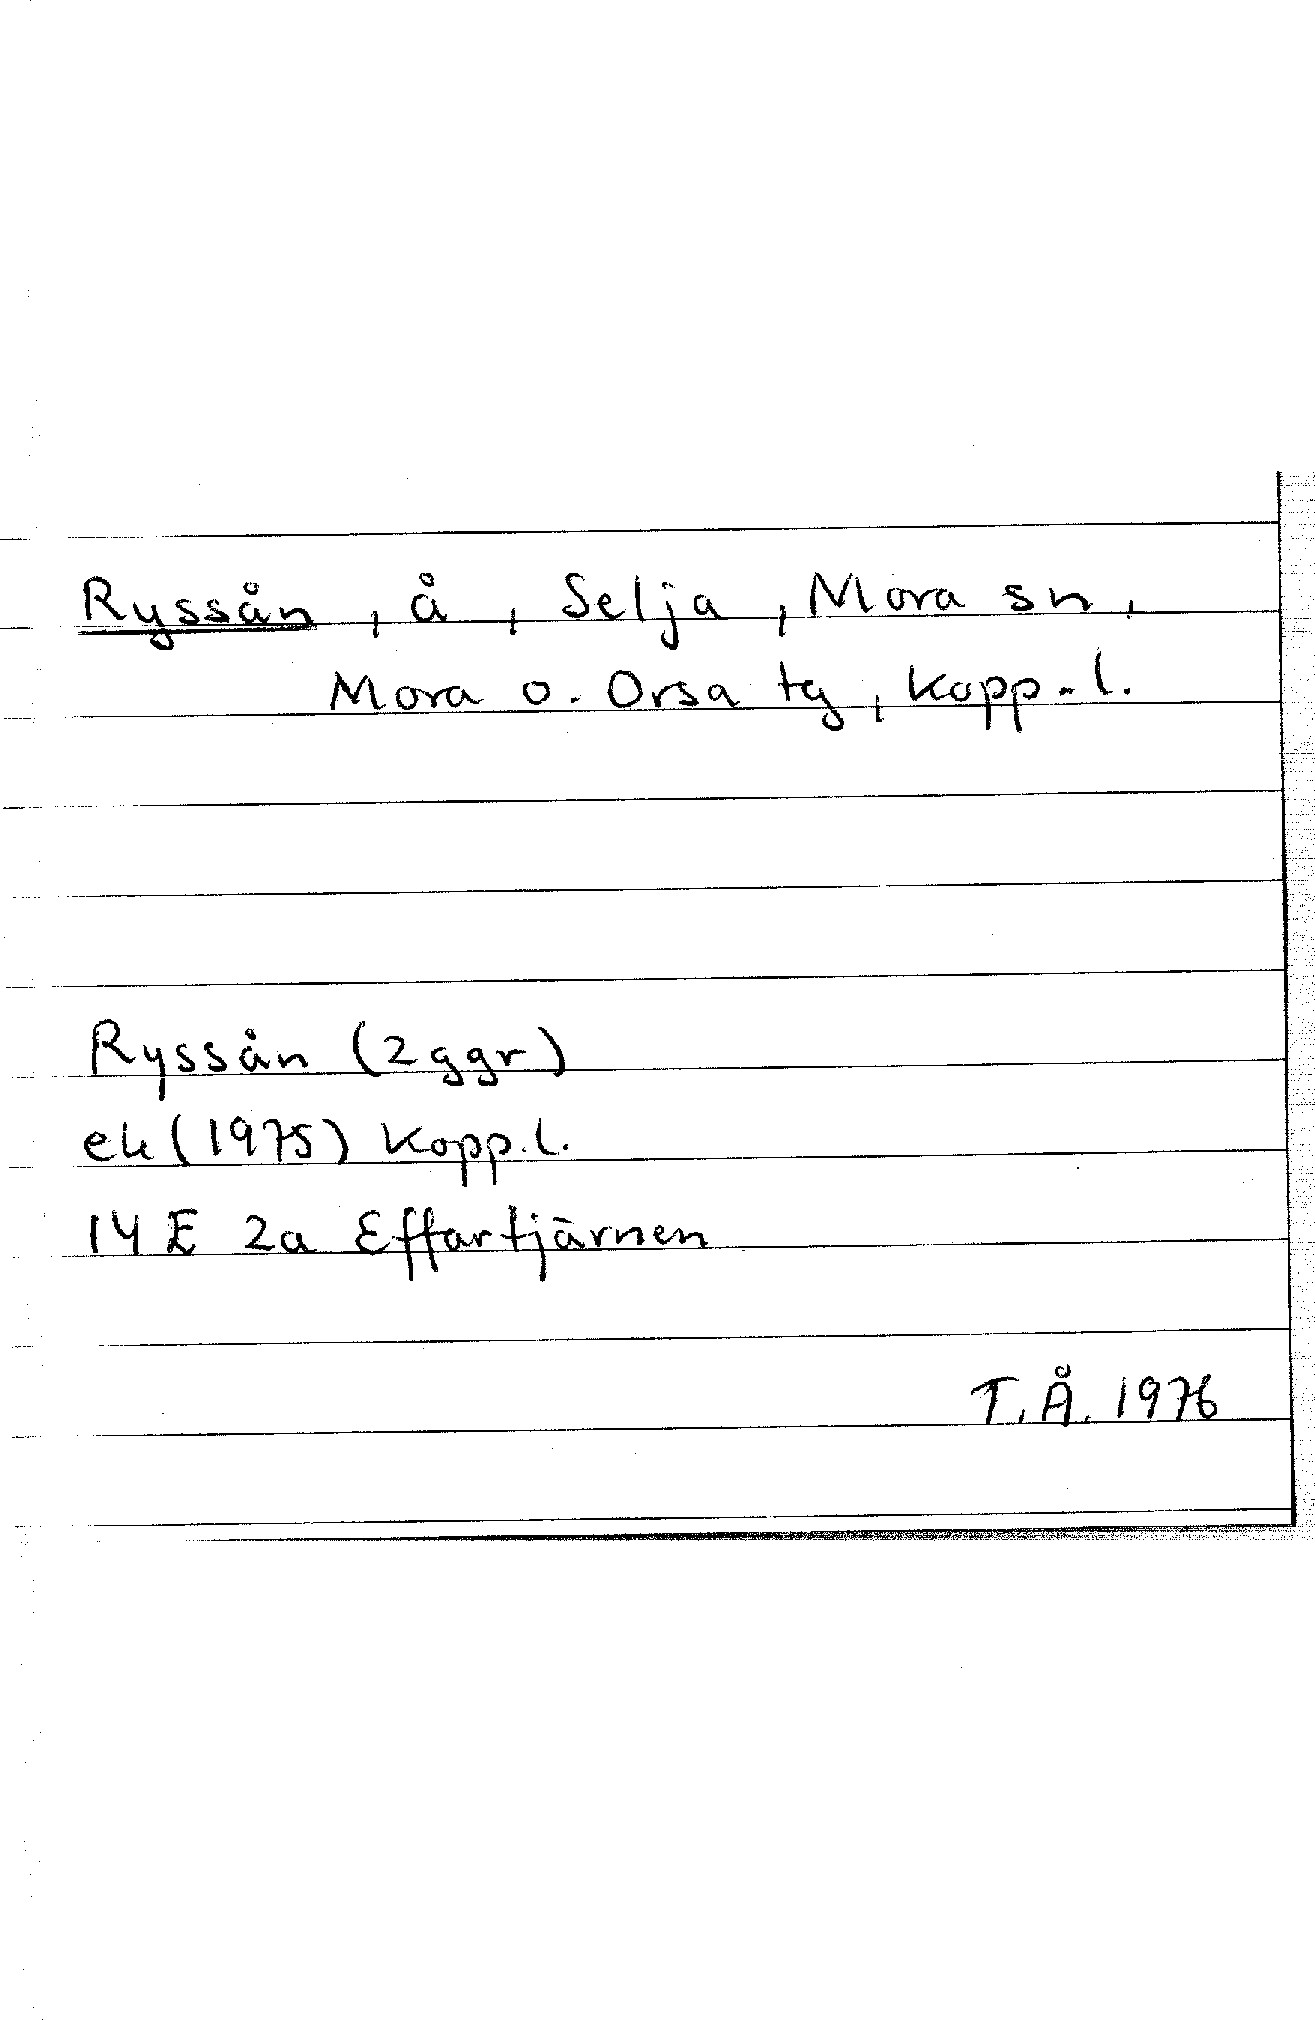 Ryssån, å, Selja, Mora sn,
Mora o. Orsa tg, Kopp.l.
Ryssån (2 ggr)
ek (1975) Kopp.l.
14 E 2a Effartjärnen
T.Å. 1976